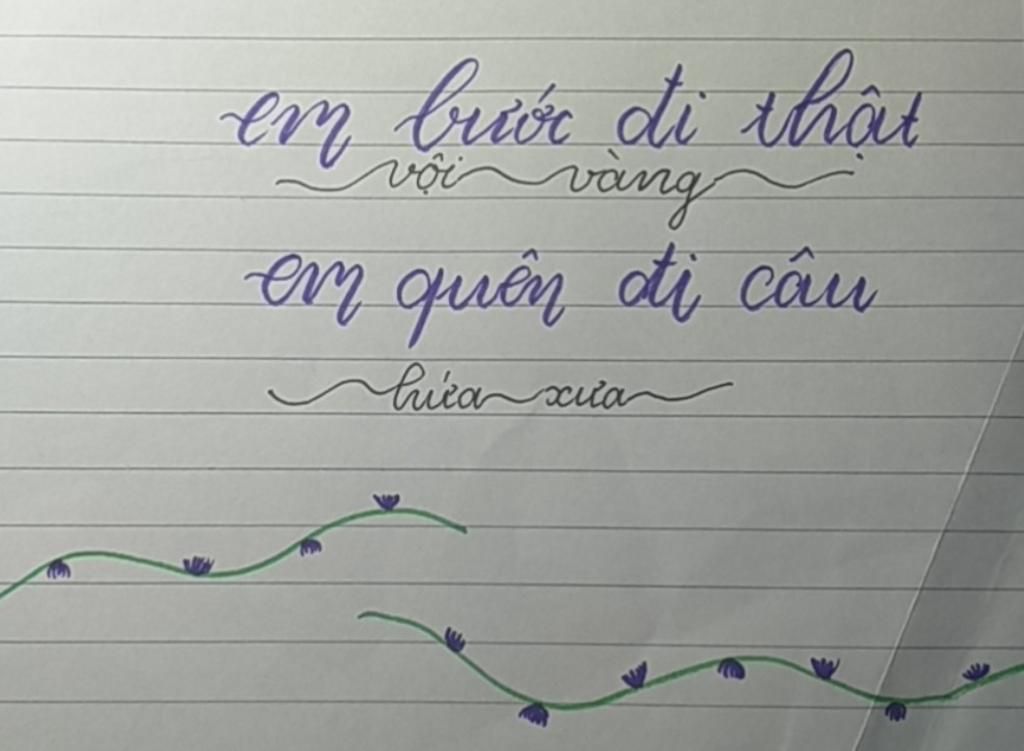 em bước đi thật
vội vàng
em quên đi câu
hứa xưa